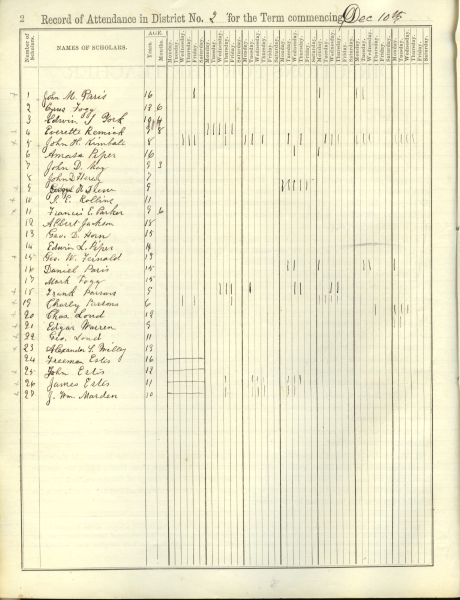 12 Record of Attendance in District No. 2 for the Term commencing Dec 10th
Number of Scholars. NAMES OF SCHOLARS. AGE. Years. Months. Monday. Tuesday. Wednesday. Thursday. Friday. Saturday. Monday. Tuesday. Wednesday. Thursday. Friday. Saturday. Monday. Tuesday. Wednesday. Thursday. Friday. Saturday. Monday. Tuesday. Wednesday. Thursday. Friday. Saturday. Monday. Tuesday. Wednesday. Thursday. Friday. Saturday. Monday. Tuesday. Wednesday. Thursday. Friday. Saturday. Monday. Tuesday. Wednesday. Thursday. Friday. Saturday.
1 John M. Paris 16
2 Cyrus Fogg 13 6
3 Edwin T. York
4 Everette Remick 8
5 John H. Kimball 8
6 Amasa Piper 16
7 John D. May 9 3
8 John 7
9 9
10 S. E. Rollins 11
11 Francis E. Parker 9 6
12 Albert Jackson 15
13 Geo. D. Horn 15
14 Edwin L. Piper 14
15 Geo. W. Fernald 13
16 Daniel Paris 15
17 Mark Fogg 15
18 Frank Parsons 9
19 Charley Parsons 6
20 Chas. Loud 12
21 Edgar Warren 9
22 Geo. Loud 11
23 Alexander S. Willey 13
24 Freeman Estis 16
25 John Estis 12
26 James Estis 11
27 J. Wm. Marden 10